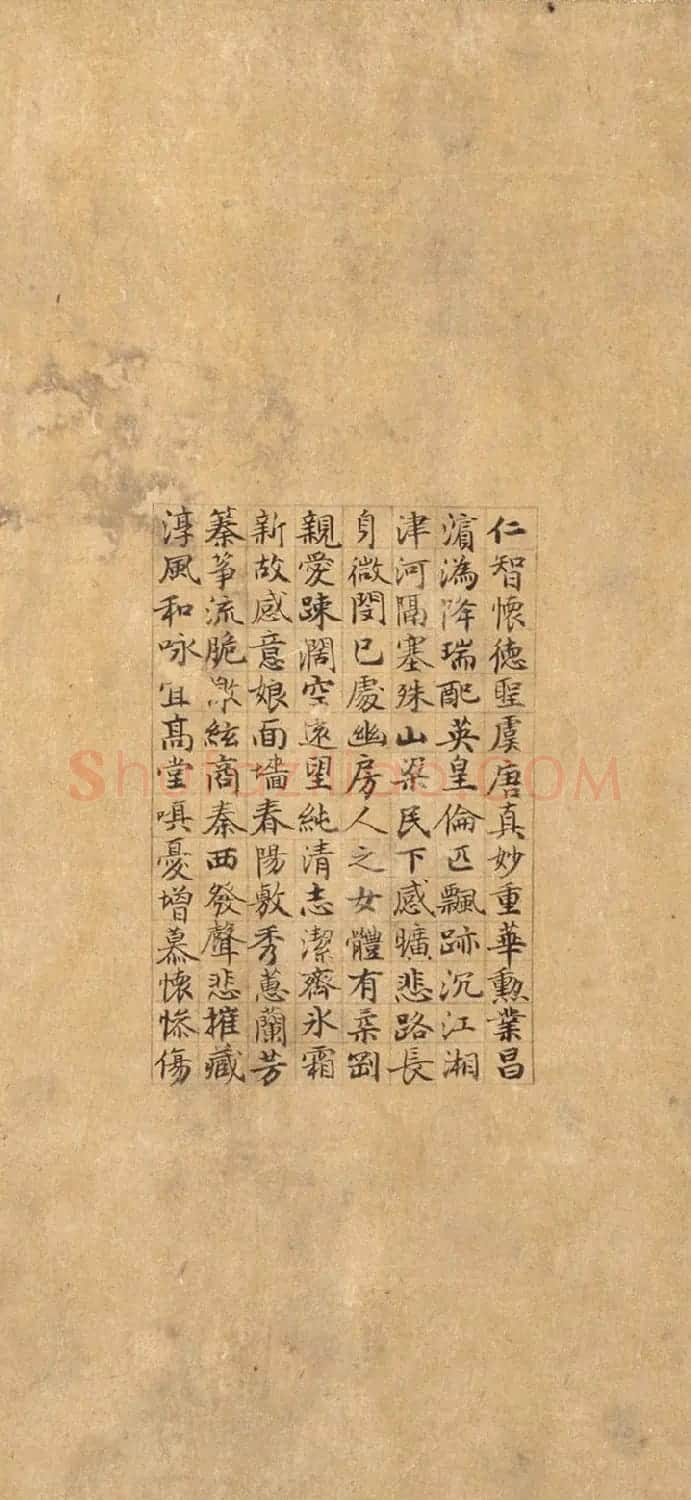 仁智懷德聖虞唐真妙重華勲業昌
濵溈降瑞配英皇倫匹飄跡沉江湘
津河隔塞殊山梁民下感曠悲路長
身微閔已處幽房人之女體有柔剛
親愛踈闊空遠望純清志潔齊氷霜
新故感意娘面墻春陽敷秀蕙蘭芳
蓁箏流脆激絃商秦西發聲悲摧藏
淳風和咏宜髙堂嗔憂增慕懷慘傷